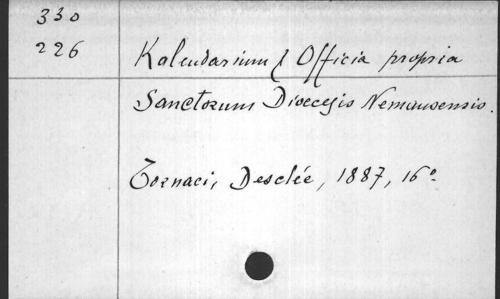 330
226
Kalendarium & Officia propria
Sanctorum Diocesis Nemausensis.
Tornaci, Desclée, 1887, 16°.